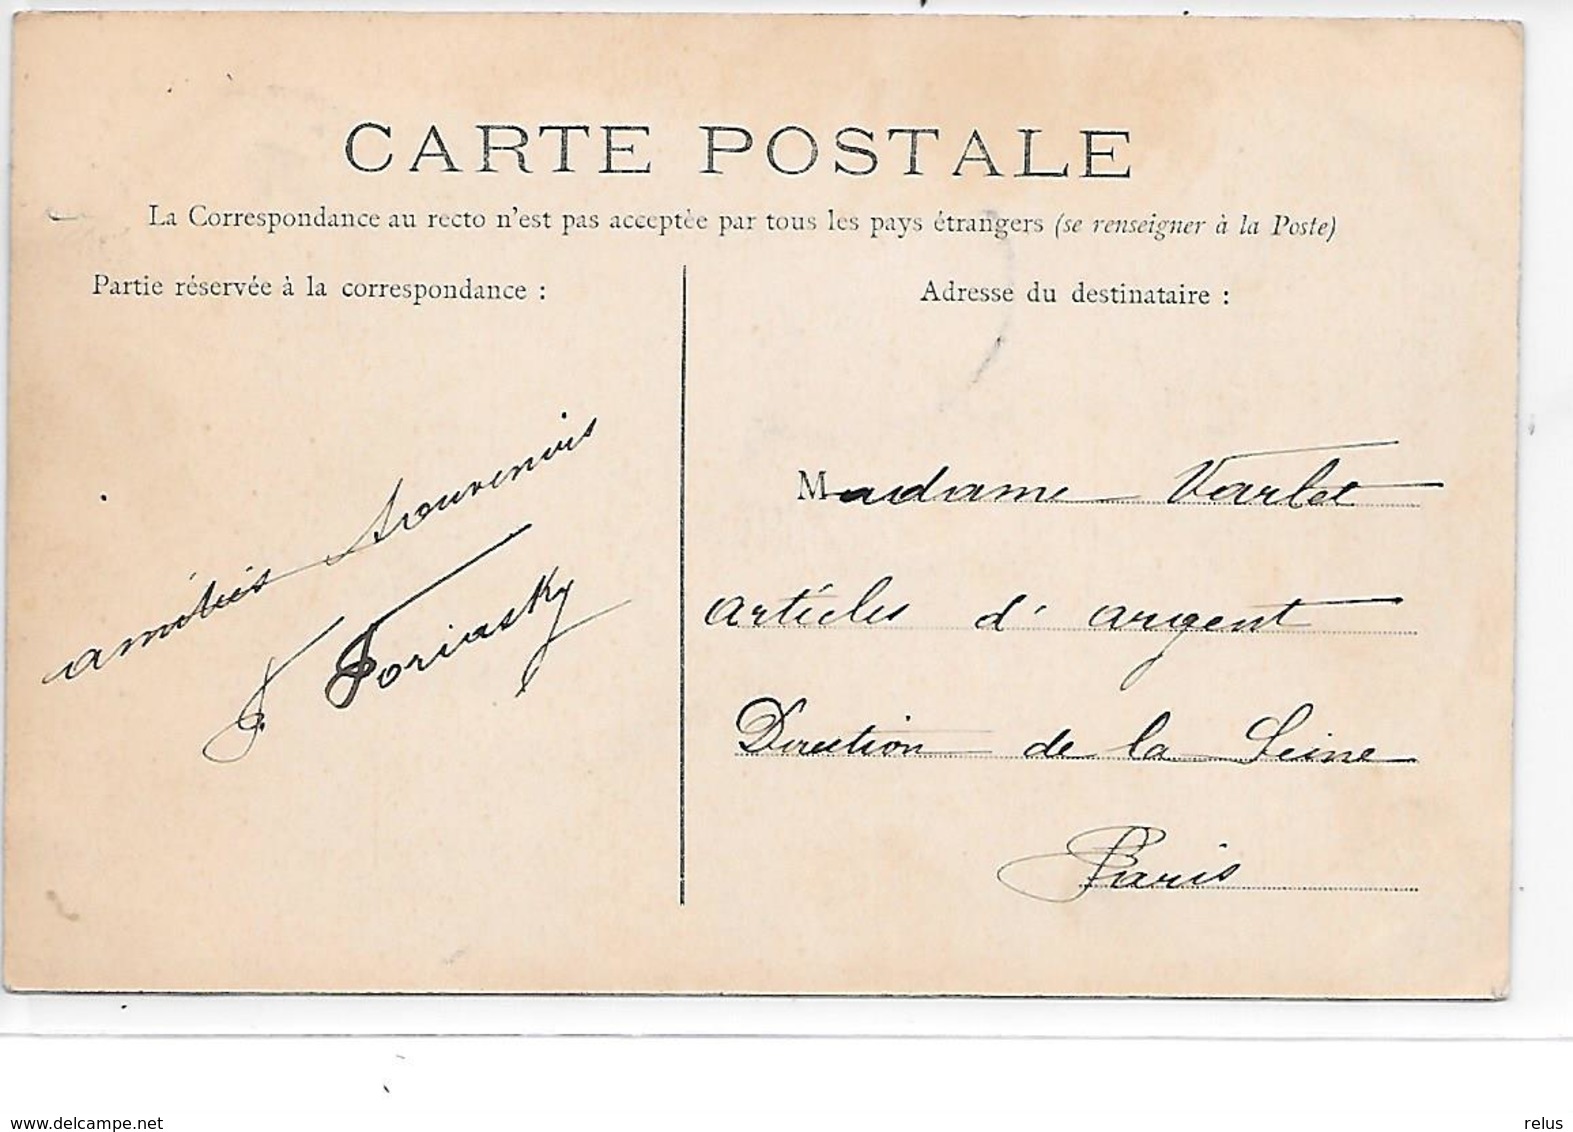 CARTE POSTALE
La Correspondance au recto n'est pas acceptée par tous les pays étrangers (se renseigner à la Poste)
Partie réservée à la correspondance :
Adresse du destinataire :
amitiés Souvenirs
Madame Varlet
articles d'argent
Direction de la Seine
Paris
www.delcampe.net
relus